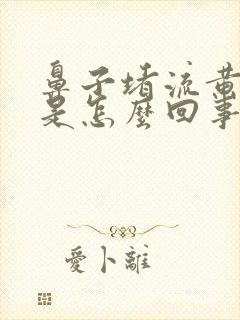 鼻子堵流黄
是怎麼回事
愛卜離